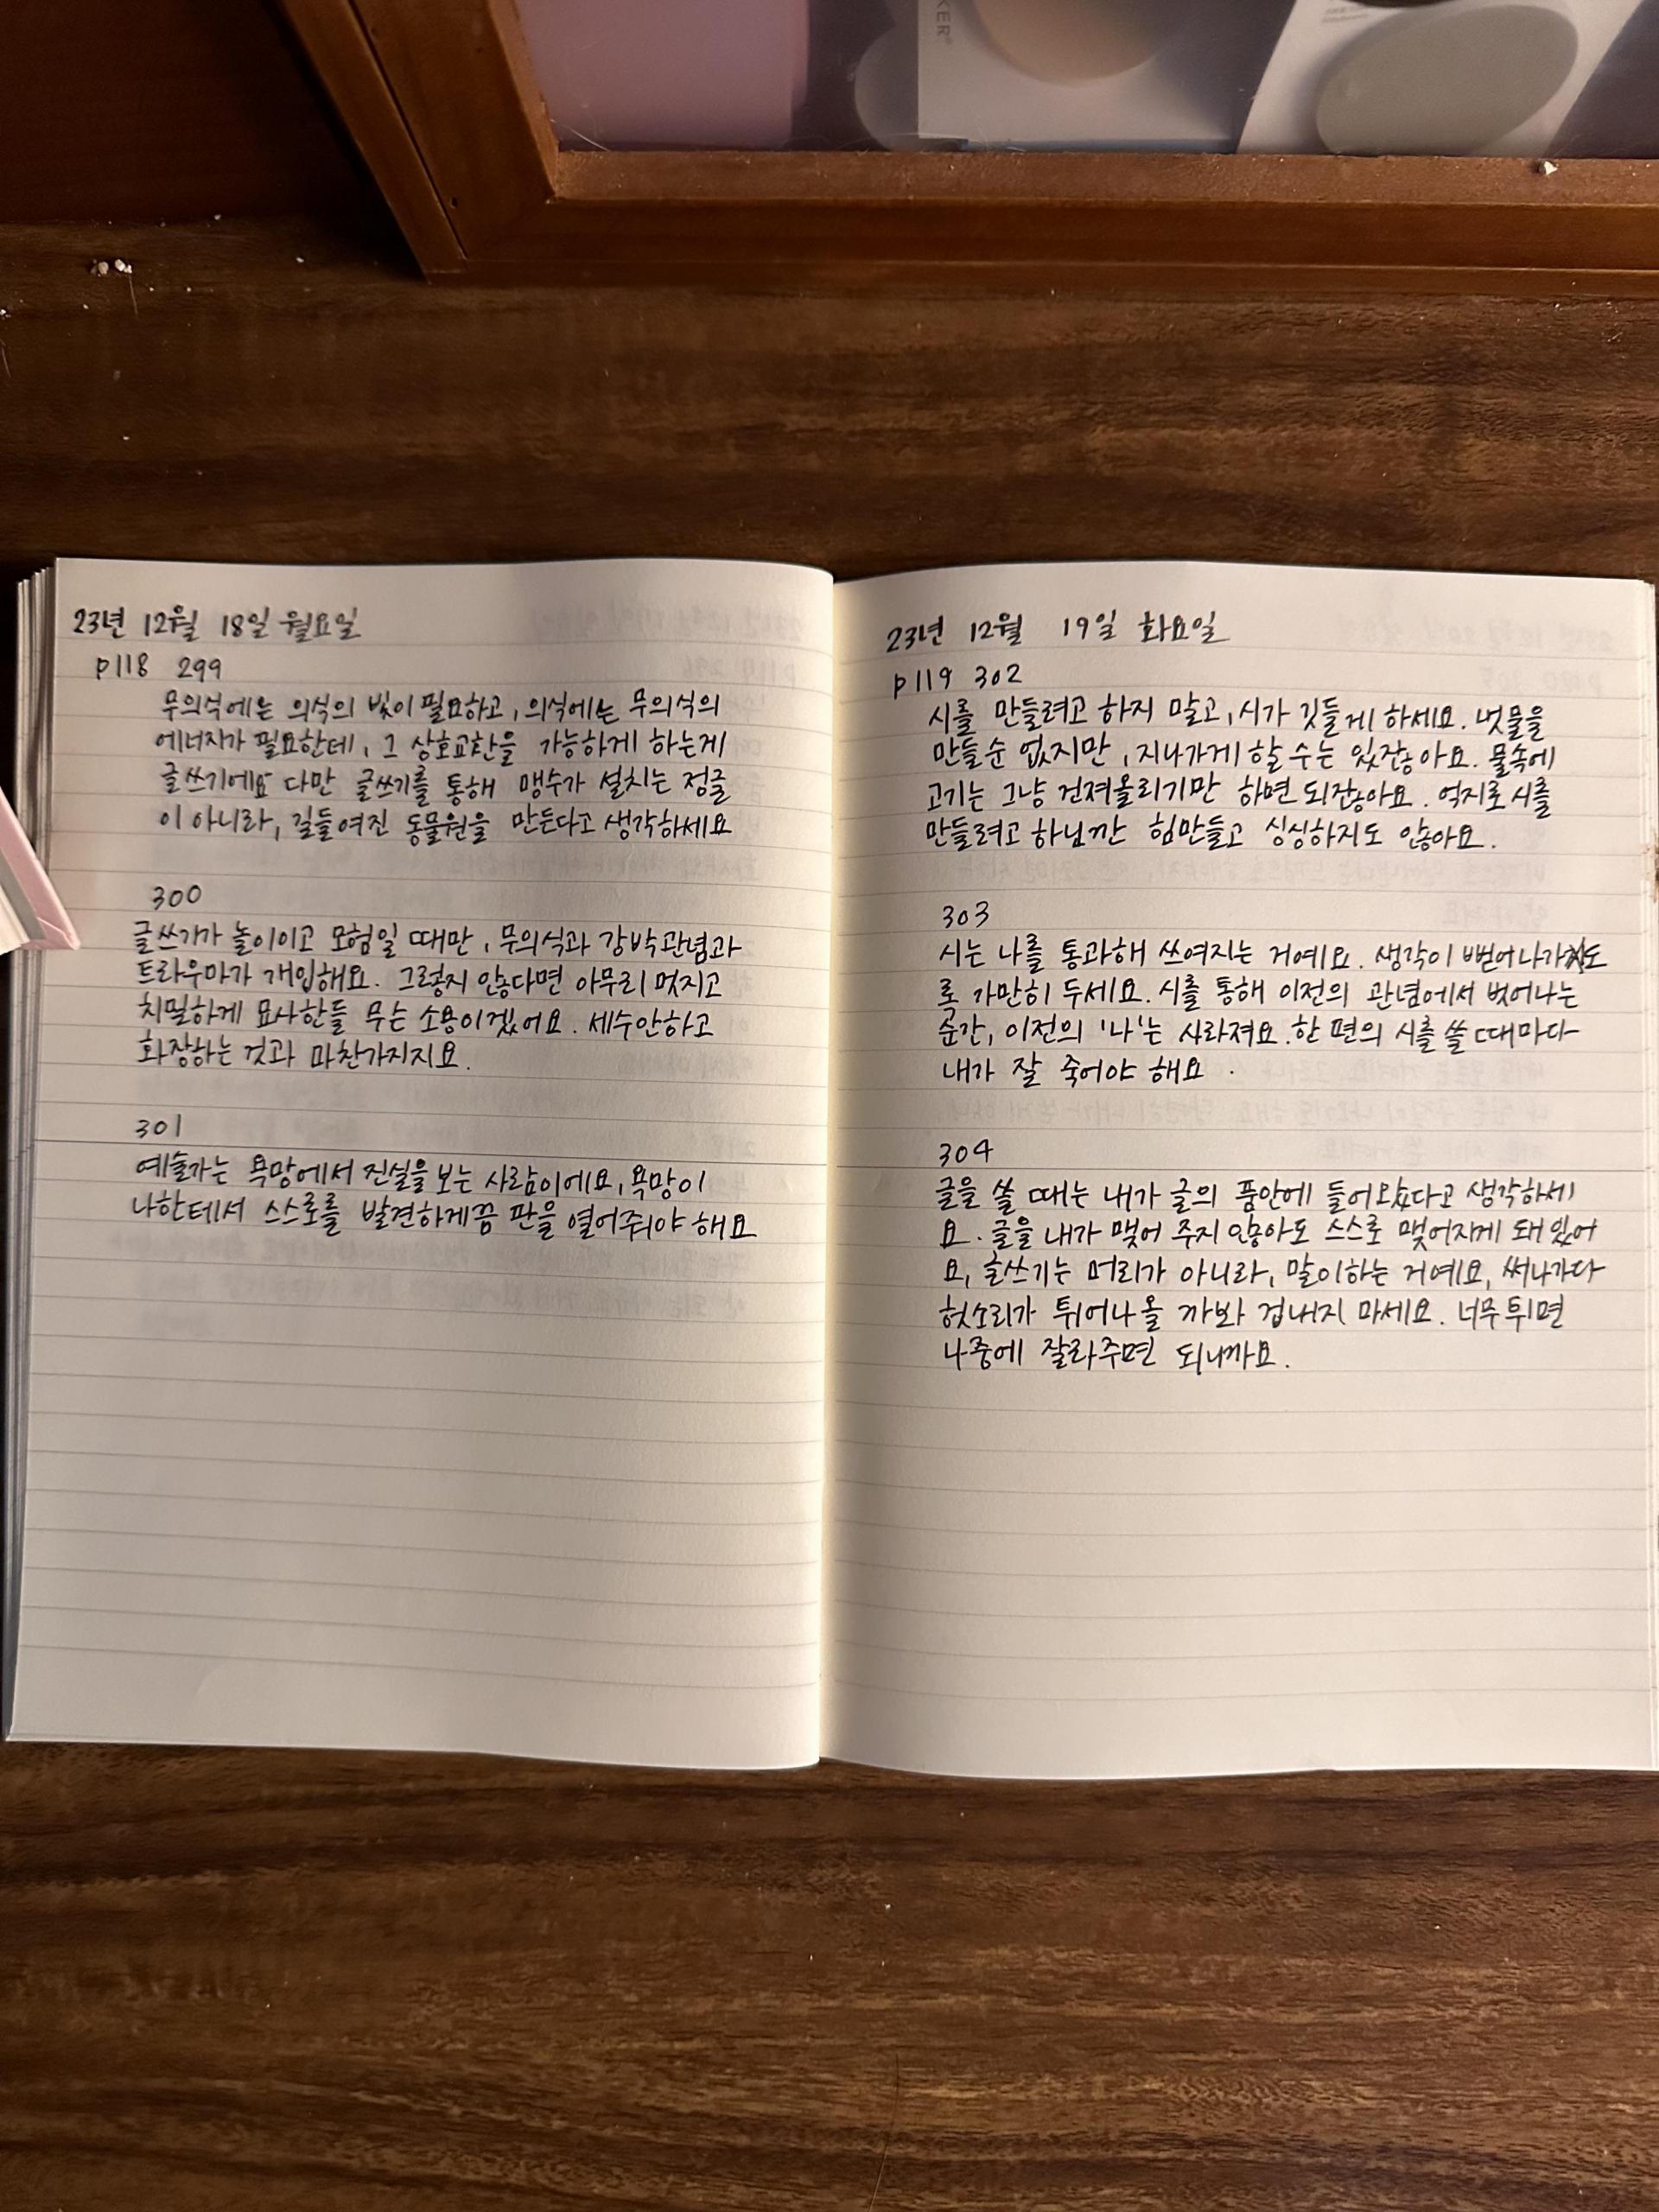 KER®
23년 12월 18일 월요일
p118 299
무의식에는 의식의 빛이 필요하고, 의식에는 무의식의
에너지가 필요한데, 그 상호교환을 가능하게 하는게
글쓰기에요 다만 글쓰기를 통해 맹수가 설치는 정글
이 아니라, 길들여진 동물원을 만든다고 생각하세요
300
글쓰기가 놀이이고 모험일 때만, 무의식과 강박관념과
트라우마가 개입해요. 그렇지 않다면 아무리 멋지고
치밀하게 묘사한들 무슨 소용이겠어요. 세수안하고
화장하는 것과 마찬가지지요.
301
예술가는 욕망에서 진실을 보는 사람이에요, 욕망이
나한테서 스스로를 발견하게끔 판을 열어줘야 해요
23년 12월 19일 화요일
p119 302
시를 만들려고 하지 말고, 시가 깃들게 하세요. 냇물을
만들순 없지만, 지나가게 할 수는 있잖아요. 물속에
고기는 그냥 건져올리기만 하면 되잖아요. 억지로 시를
만들려고 하닝깐 힘만들고 싱싱하지도 않아요.
303
시는 나를 통과해 쓰여지는 거예요. 생각이 뻗어나가도
록 가만히 두세요. 시를 통해 이전의 관념에서 벗어나는
순간, 이전의 '나'는 사라져요. 한 편의 시를 쓸 때마다
내가 잘 죽어야 해요.
304
글을 쓸 때는 내가 글의 품안에 들어왔다고 생각하세
요. 글을 내가 맺어 주지 않아도 스스로 맺어지게 돼 있어
요, 글쓰기는 머리가 아니라, 말이하는 거예요, 써나가다
헛소리가 튀어나올 까봐 겁내지 마세요. 너무 튀면
나중에 잘라주면 되니까요.